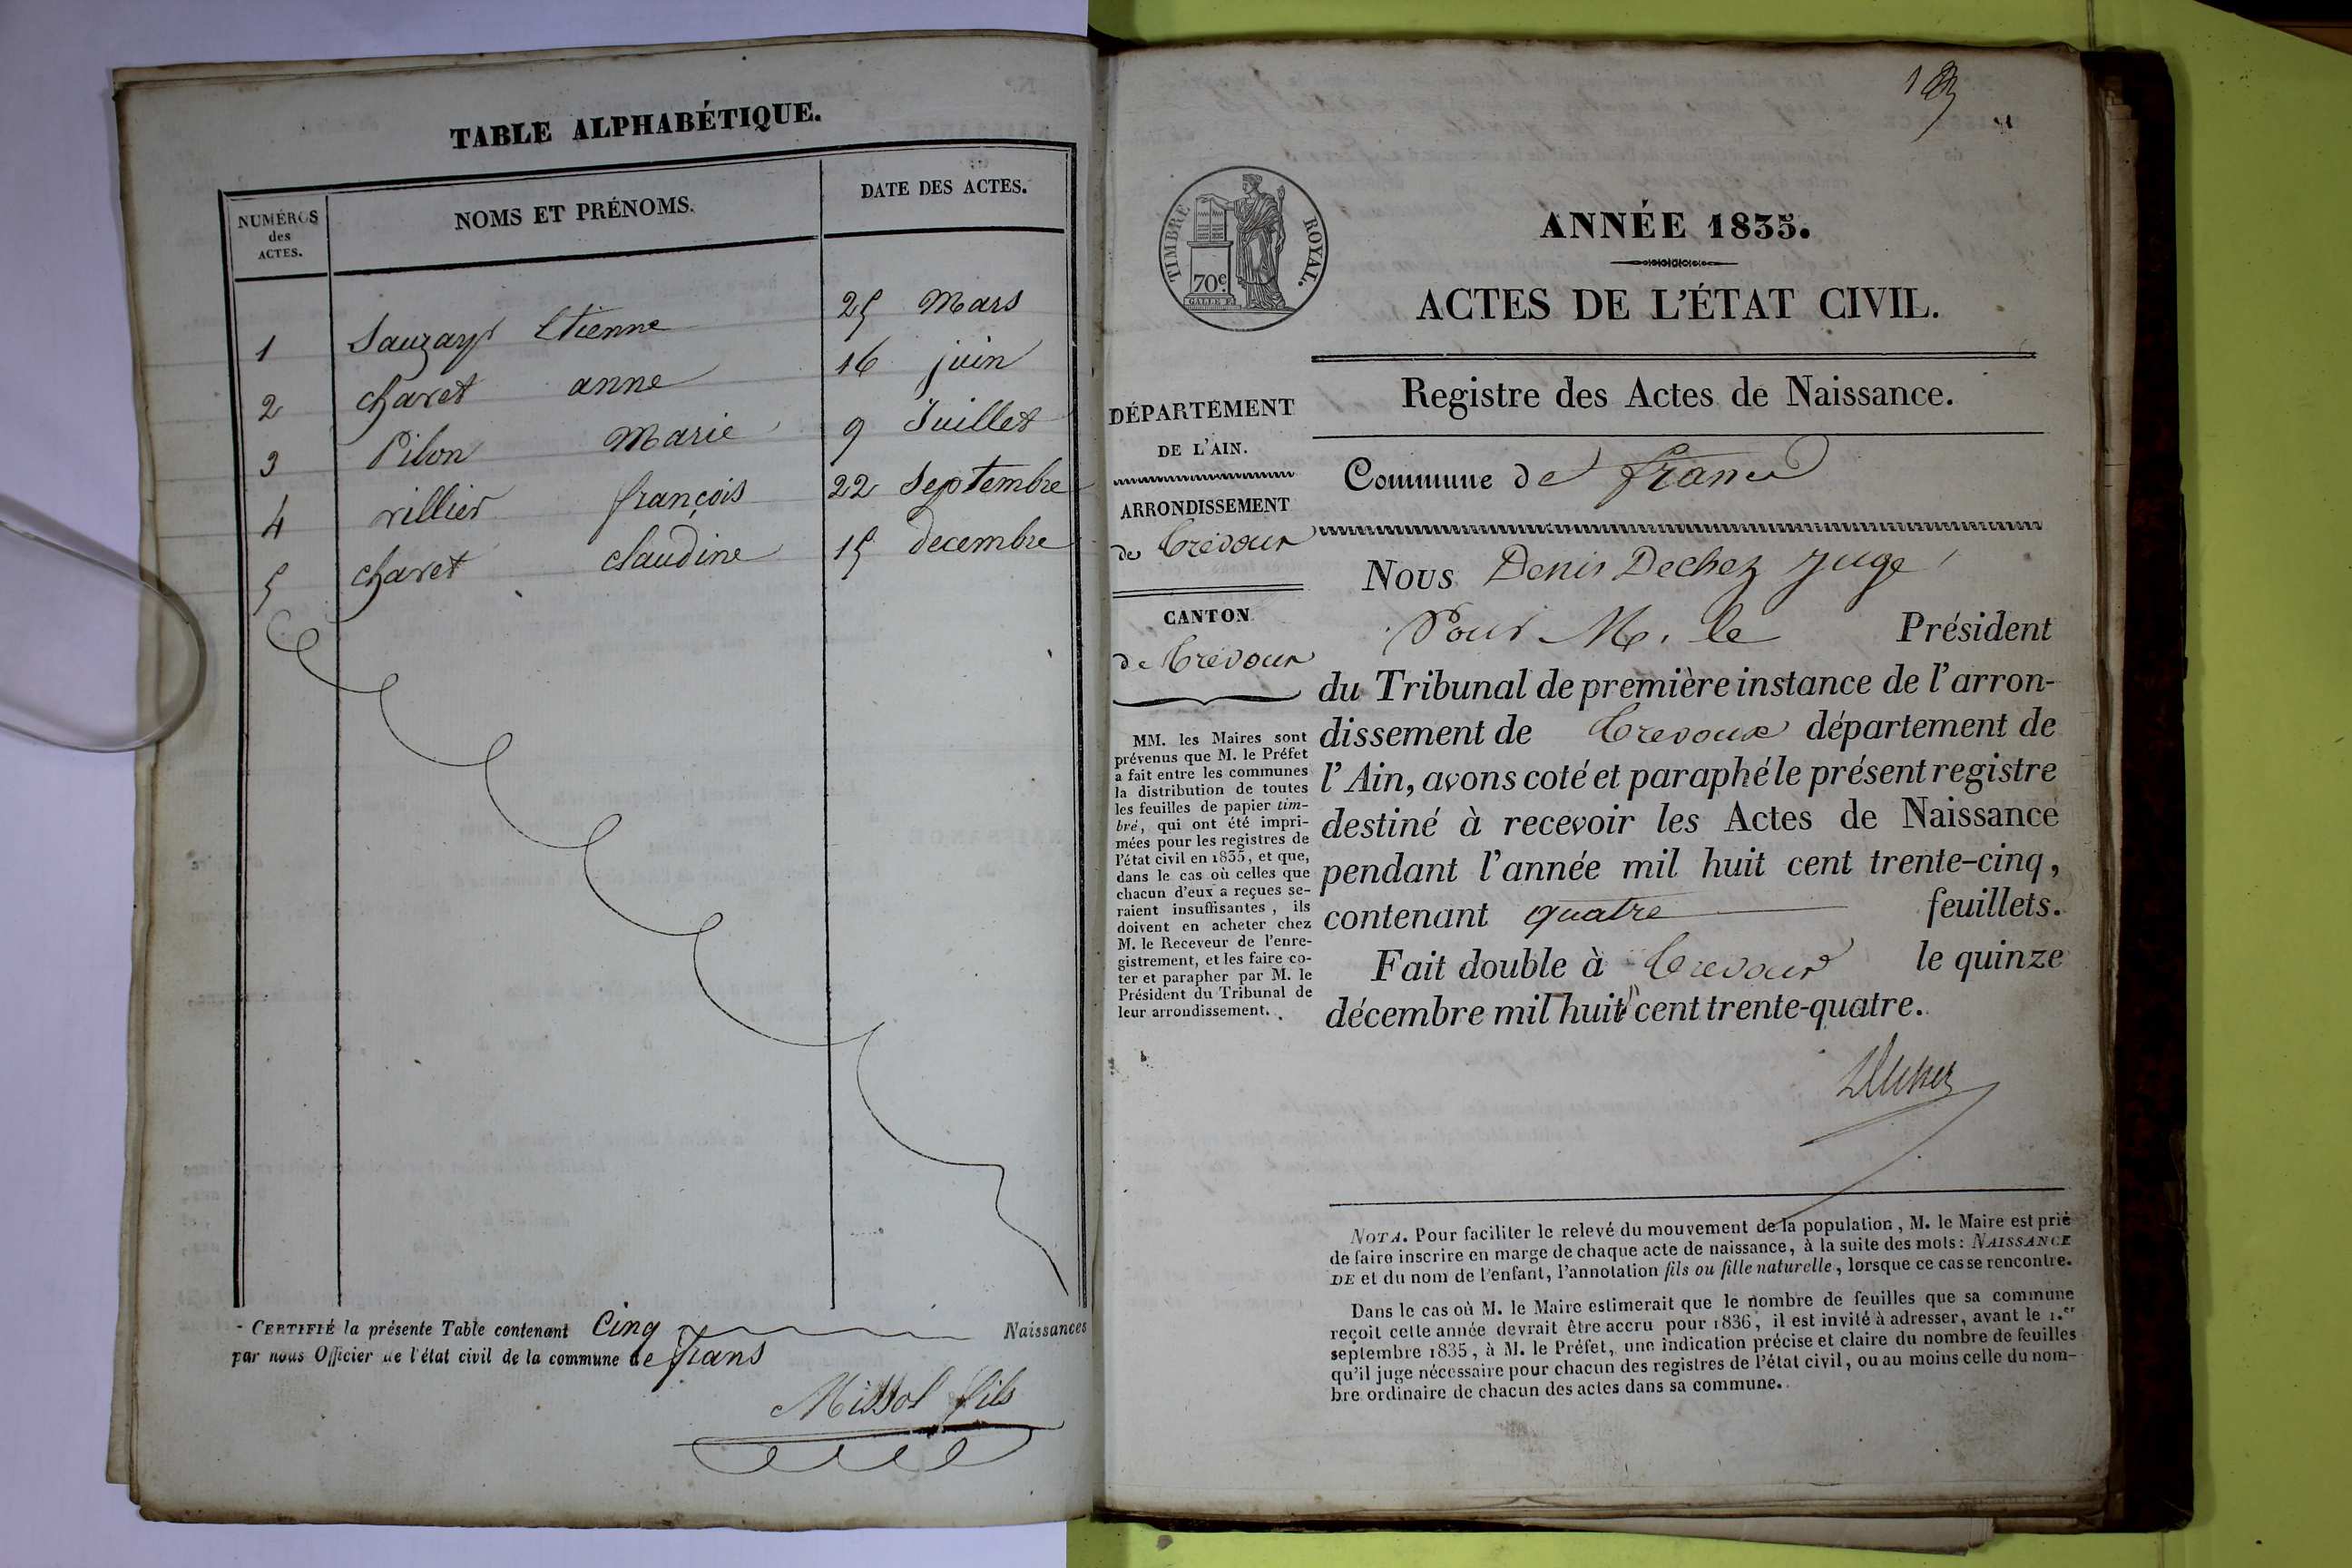 TABLE ALPHABÉTIQUE.
NUMÉROS
des
ACTES.
NOMS ET PRÉNOMS.
DATE DES ACTES.
1 Sauzay Etienne 25 Mars
2 charet anne 16 juin
3 Pilon Marie 9 Juillet
4 villier françois 22 Septembre
5 charet claudine 15 decembre
CERTIFIÉ la présente Table contenant Cinq Naissances
par nous Officier de l'état civil de la commune de frans
Missol fils
TIMBRE ROYAL.
70c.
ANNÉE 1835.
ACTES DE L'ÉTAT CIVIL.
Registre des Actes de Naissance.
DÉPARTEMENT
DE L'AIN.
ARRONDISSEMENT
de Trévoux
CANTON
de Trévoux
MM. les Maires sont
prévenus que M. le Préfet
a fait entre les communes
la distribution de toutes
les feuilles de papier tim-
bré, qui ont été impri-
mées pour les registres de
l'état civil en 1835, et que,
dans le cas où celles que
chacun d'eux a reçues se-
raient insuffisantes, ils
doivent en acheter chez
M. le Receveur de l'enre-
gistrement, et les faire co-
ter et parapher par M. le
Président du Tribunal de
leur arrondissement.
Commune de frans
Nous Denis Dechez Juge
Pour M. le Président
du Tribunal de première instance de l'arron-
dissement de Trevoux département de
l'Ain, avons coté et paraphé le présent registre
destiné à recevoir les Actes de Naissance
pendant l'année mil huit cent trente-cinq,
contenant quatre feuillets.
Fait double à Trevoux le quinze
décembre mil huit cent trente-quatre.
Dechez
NOTA. Pour faciliter le relevé du mouvement de la population, M. le Maire est prié
de faire inscrire en marge de chaque acte de naissance, à la suite des mots: NAISSANCE
DE et du nom de l'enfant, l'annotation fils ou fille naturelle, lorsque ce cas se rencontre.
Dans le cas où M. le Maire estimerait que le nombre de feuilles que sa commune
reçoit cette année devrait être accru pour 1836, il est invité à adresser, avant le 1.er
septembre 1835, à M. le Préfet, une indication précise et claire du nombre de feuilles
qu'il juge nécessaire pour chacun des registres de l'état civil, ou au moins celle du nom-
bre ordinaire de chacun des actes dans sa commune.